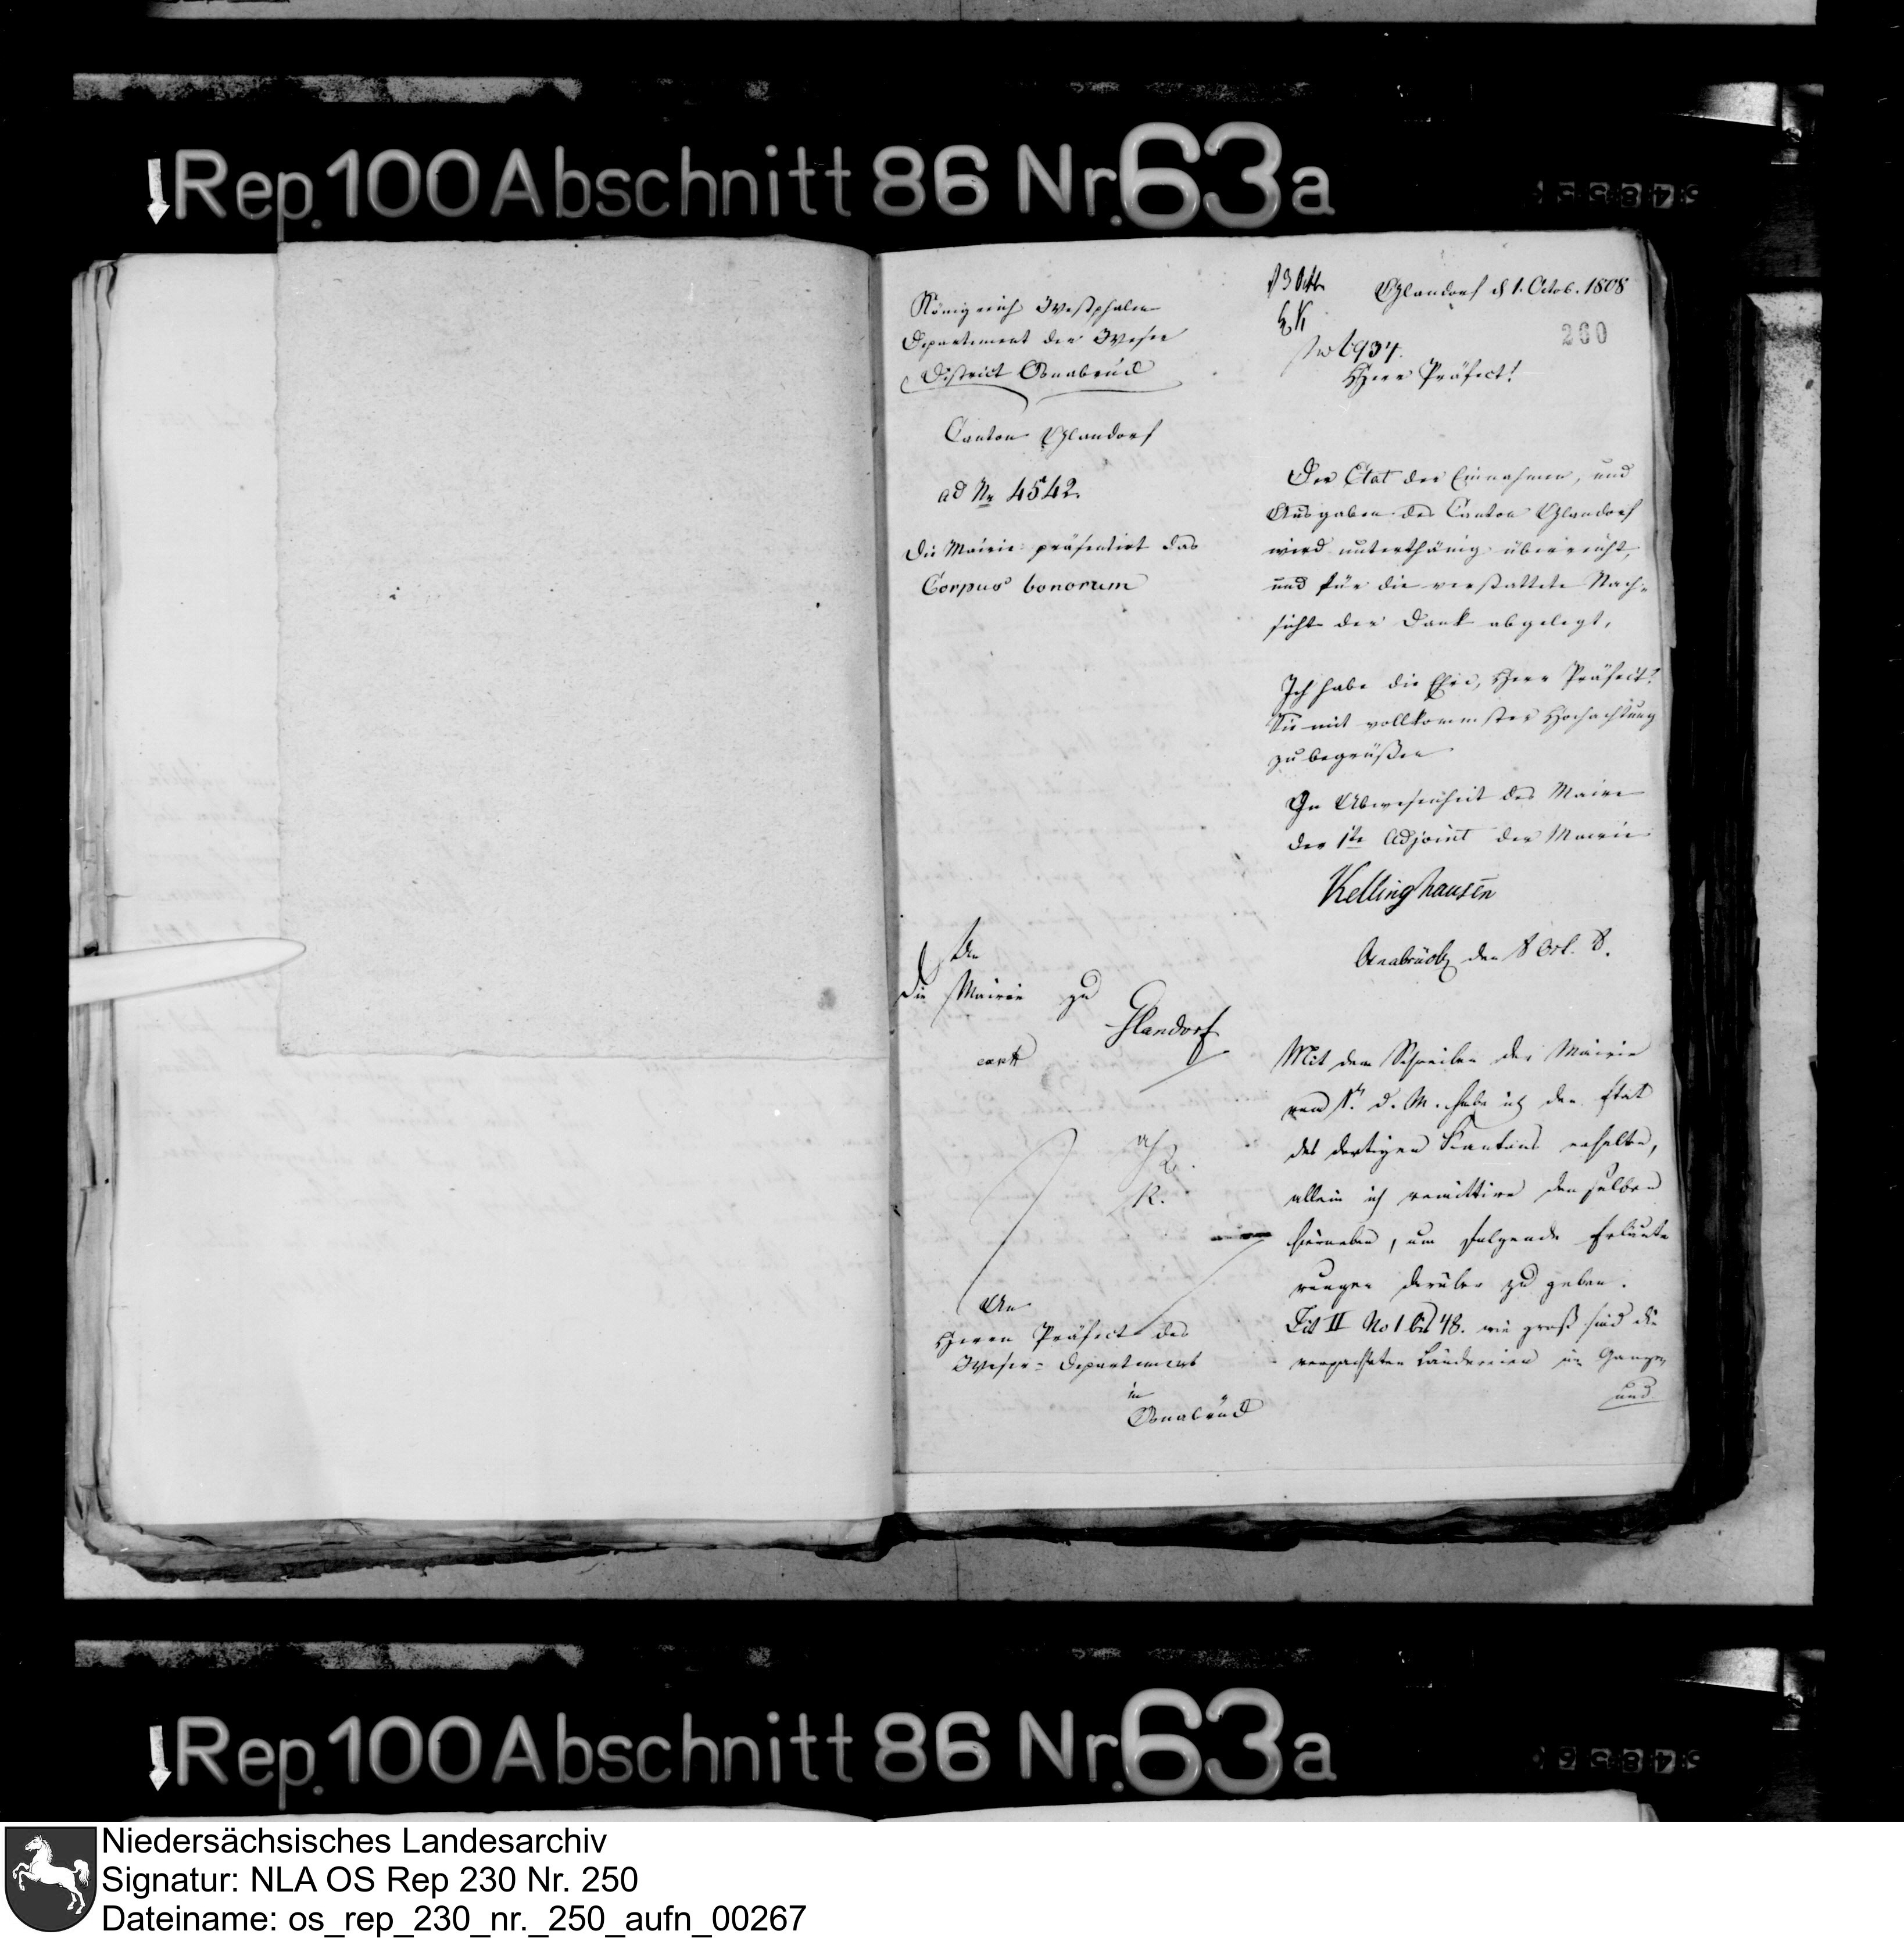 Rep. 100 Abschnitt 86 Nr. 63a
Königreich Westphalen
Departement der Weser
District Osnabrück
Canton Glandorf
ad Nr 4542.
Die Mairie präsentirt das
Corpus bonorum
Glandorf d 1. Octob. 1808
260
6934.
Herr Präfect!
Der Etat der Einnahmen, und
Ausgaben des Canton Glandorf
wird unterthänig überreicht,
und für die verstattete Nach-
sicht der Dank abgelegt,
Ich habe die Ehre, Herr Präfect!
Sie mit vollkommster Hochachtung
zu begrüßen
In Abwesenheit des Maire
der 1te Adjoint der Mairie
Kellinghausen
An
die Mairie zu
Glandorf
Osnabrück den 8 Oct. 8.
Mit dem Schreiben der Mairie
vom 1t. d. M. habe ich den Etat
des dortigen Kantons erhalten,
allein ich remittire denselben
hierneben, um folgende Erläute
rungen darüber zu geben.
Tit II No 1 bis 48. wie groß sind die
verpachteten Ländereien im Ganzen
und
K.
An
Herrn Präfect des
Weser-Departement
in
Osnabrück
Rep. 100 Abschnitt 86 Nr. 63a
Niedersächsisches Landesarchiv
Signatur: NLA OS Rep 230 Nr. 250
Dateiname: os_rep_230_nr._250_aufn_00267